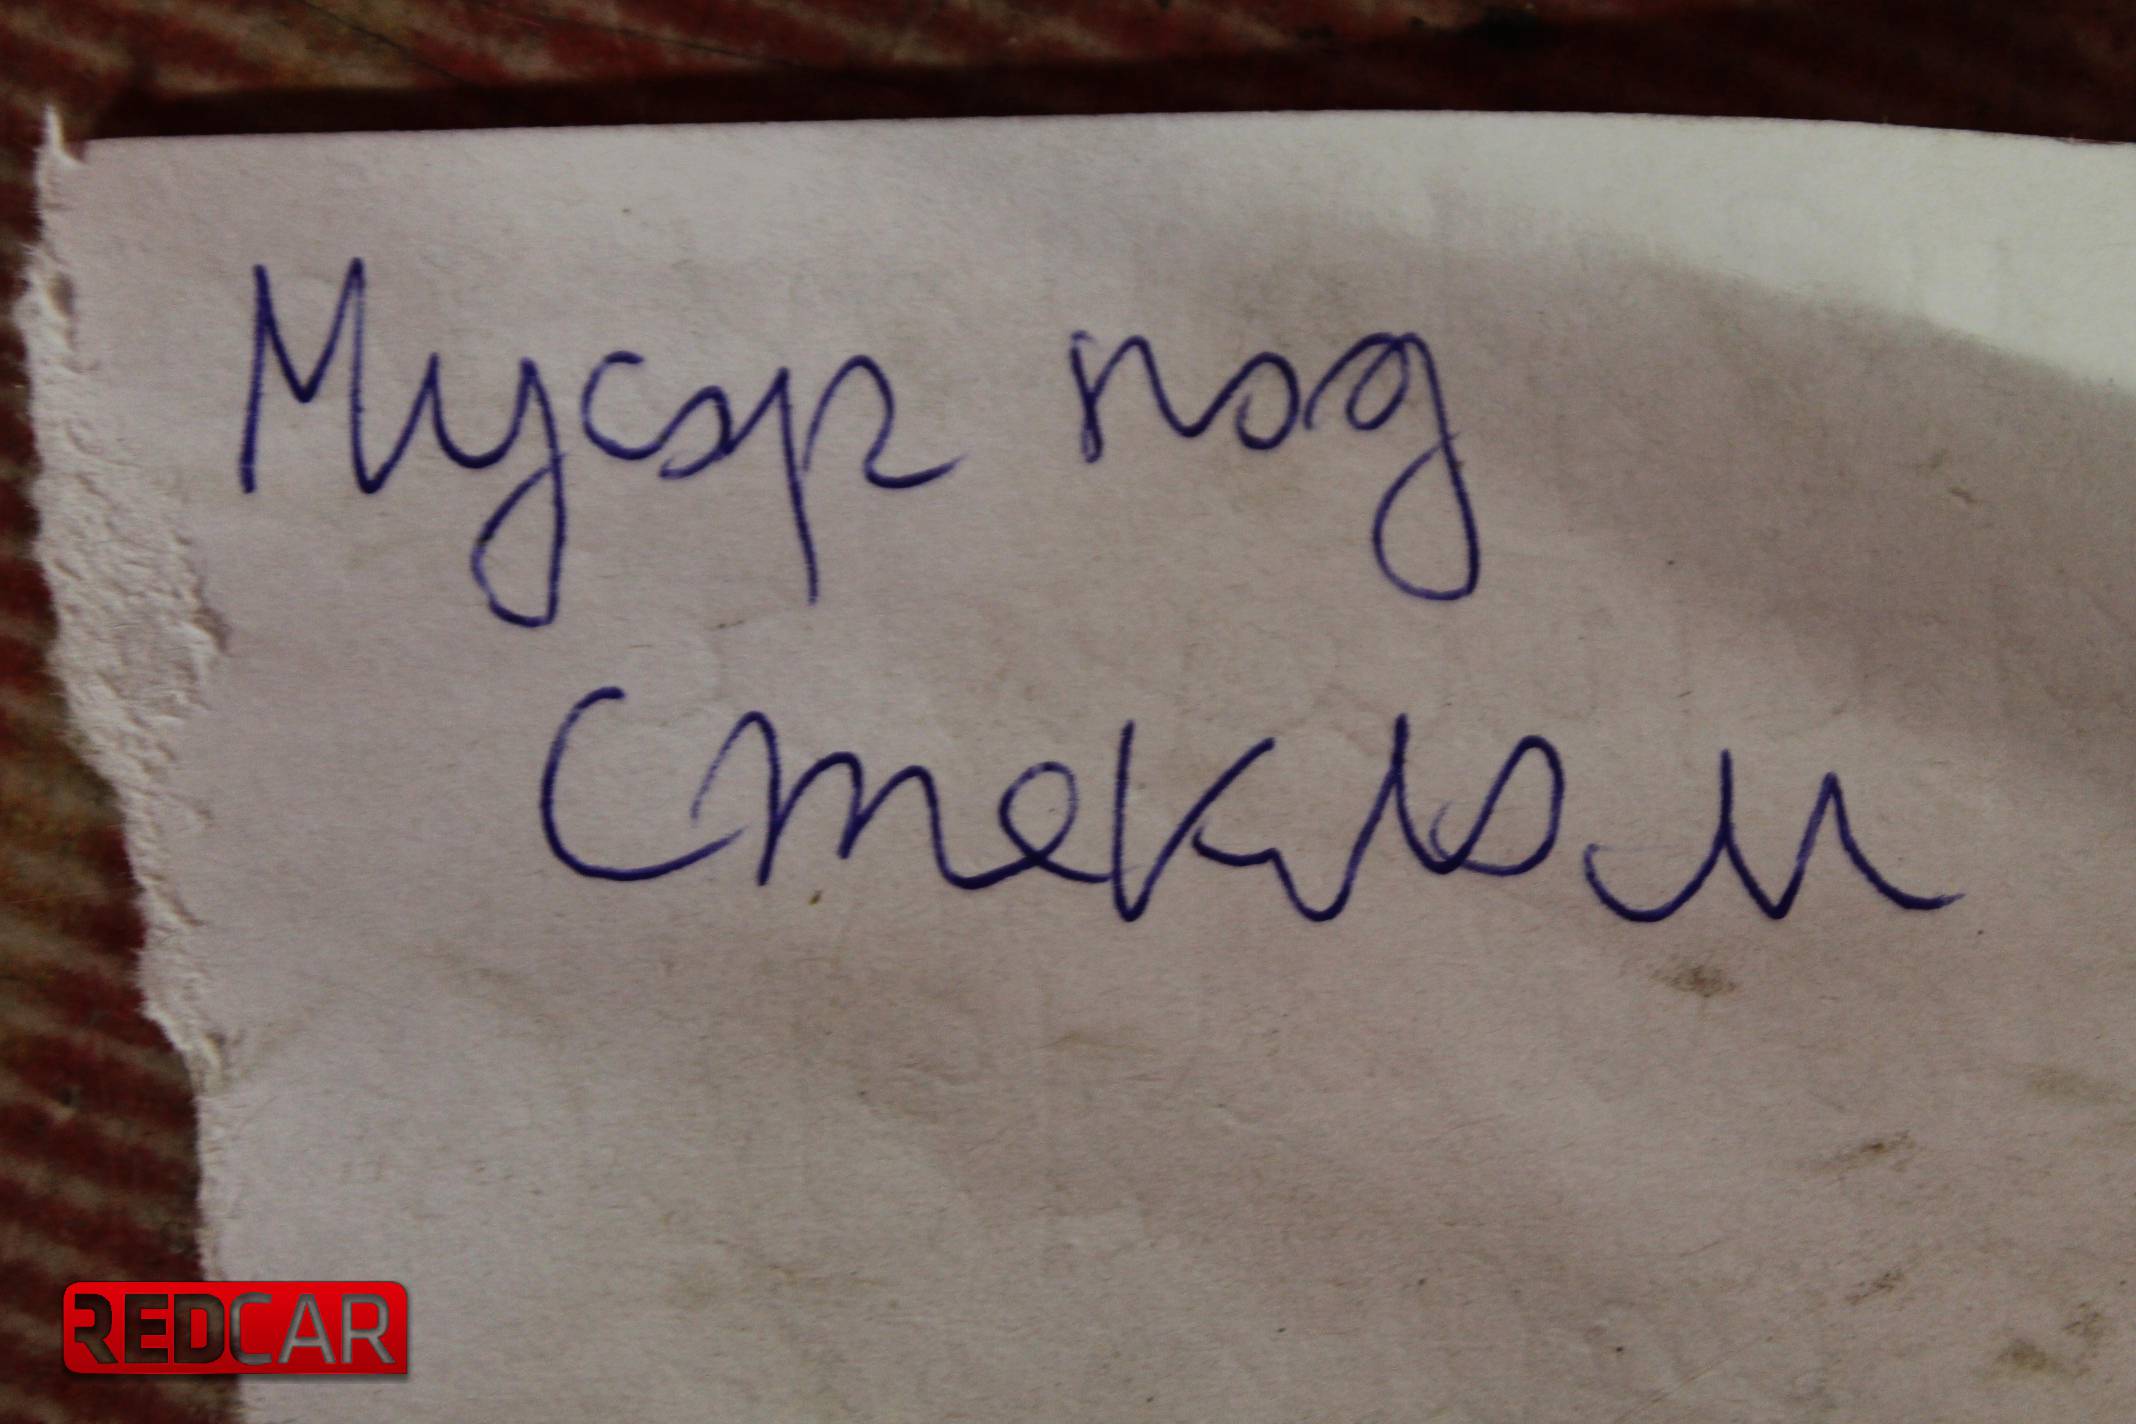 Мусор под
стеклом
REDCAR